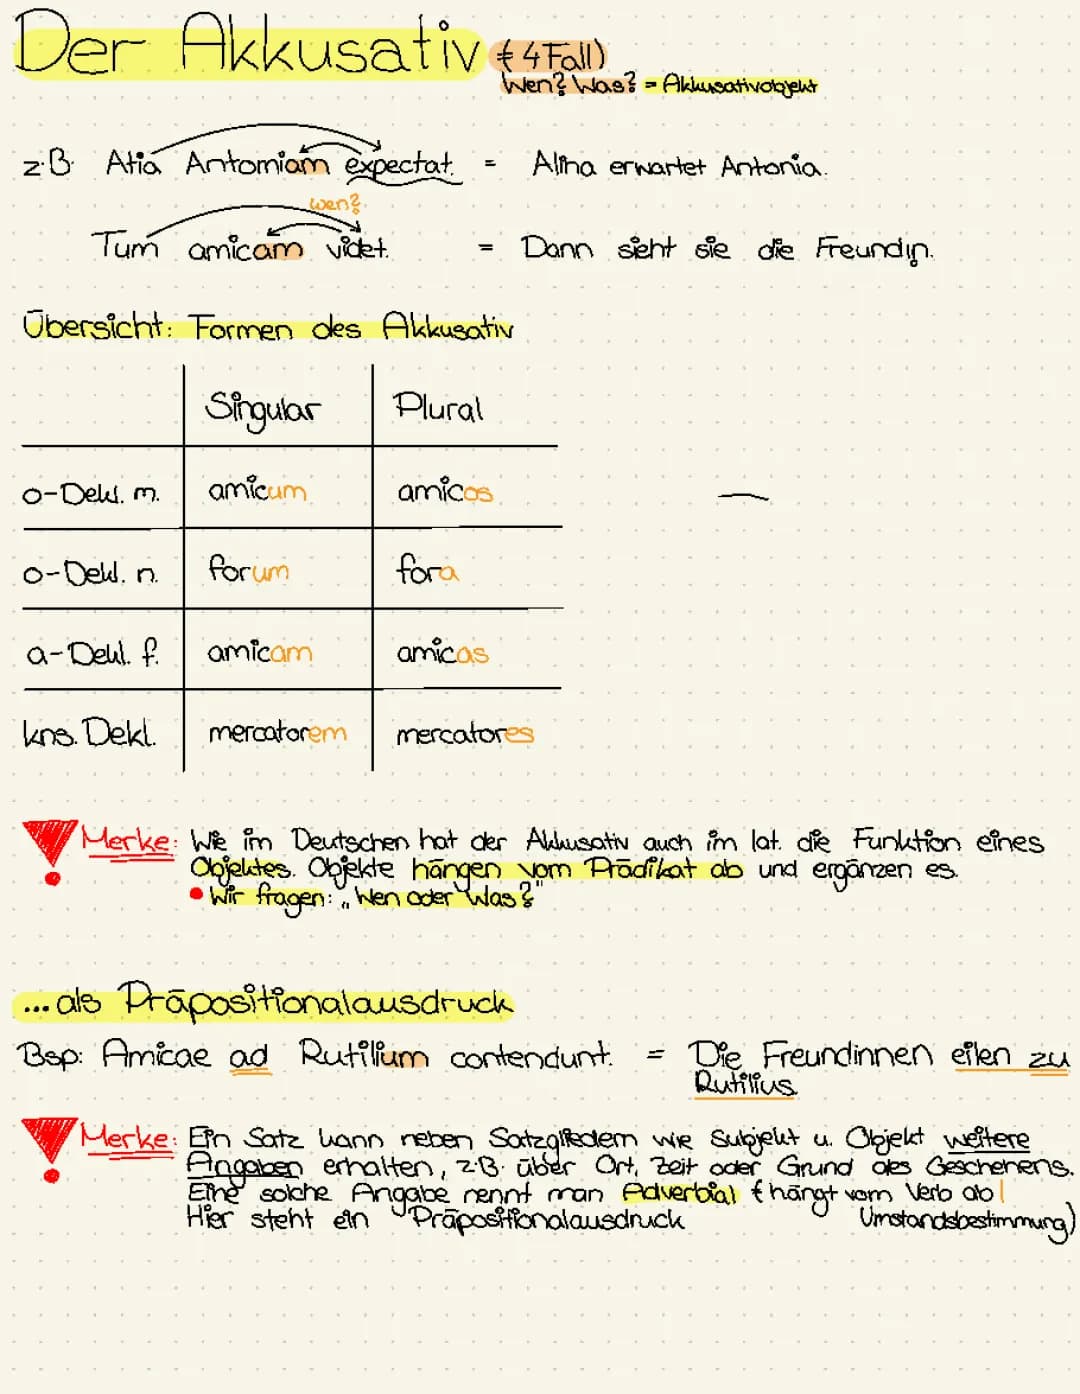 Der Akkusativ (4 Fall)
Wen? Was? = Akkusativobjekt
z.B. Atia Antomiam expectat. = Alina erwartet Antonia.
wen?
Tum amicam videt. = Dann sieht sie die Freundin.
Übersicht: Formen des Akkusativ
Singular Plural
o-Dekl. m. amicum amicos
o-Dekl. n. forum fora
a-Dekl. f. amicam amicas
kns. Dekl. mercatorem mercatores
Merke: Wie im Deutschen hat der Akkusativ auch im lat. die Funktion eines
Objektes. Objekte hängen vom Prädikat ab und ergänzen es.
• Wir fragen: „Wen oder Was?"
... als Präpositionalausdruck
Bsp: Amicae ad Rutilium contendunt. = Die Freundinnen eilen zu
Rutilius
Merke: Ein Satz kann neben Satzgliedern wie Subjekt u. Objekt weitere
Angaben erhalten, z.B. über Ort, Zeit oder Grund des Geschehens.
Eine solche Angabe nennt man Adverbial (hängt vom Verb ab |
Hier steht ein Präpositionalausdruck Umstandsbestimmung)